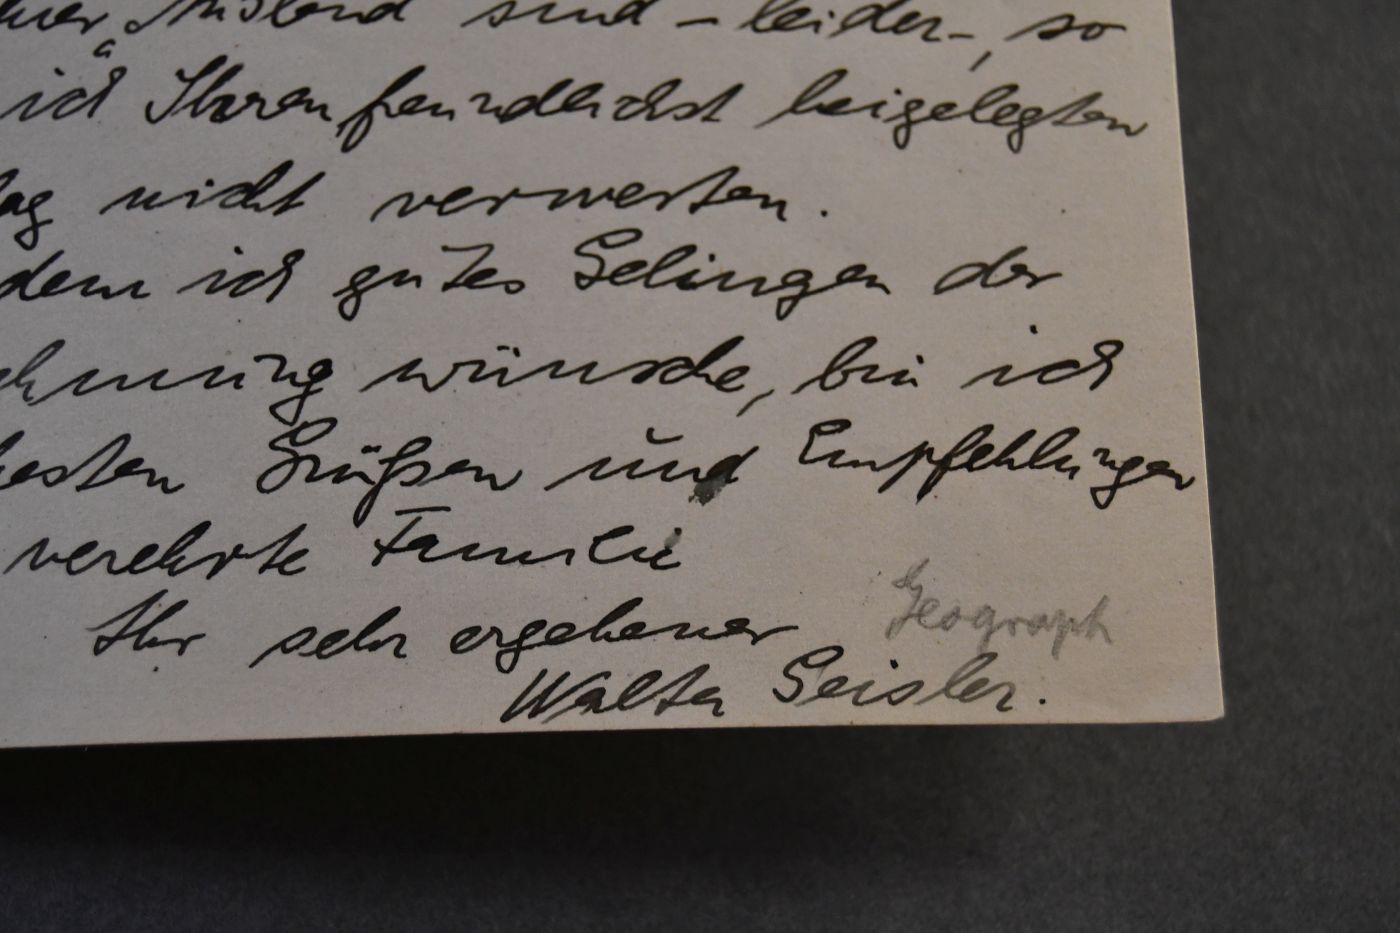 Ausland sind – leider –, so
ich Ihren freundlichst beigelegten
nicht verwerten.
dem ich gutes Gelingen der
wünsche, bin ich
besten Grüßen und Empfehlungen
verehrte Familie
Ihr sehr ergebener
Geograph
Walter Geisler.